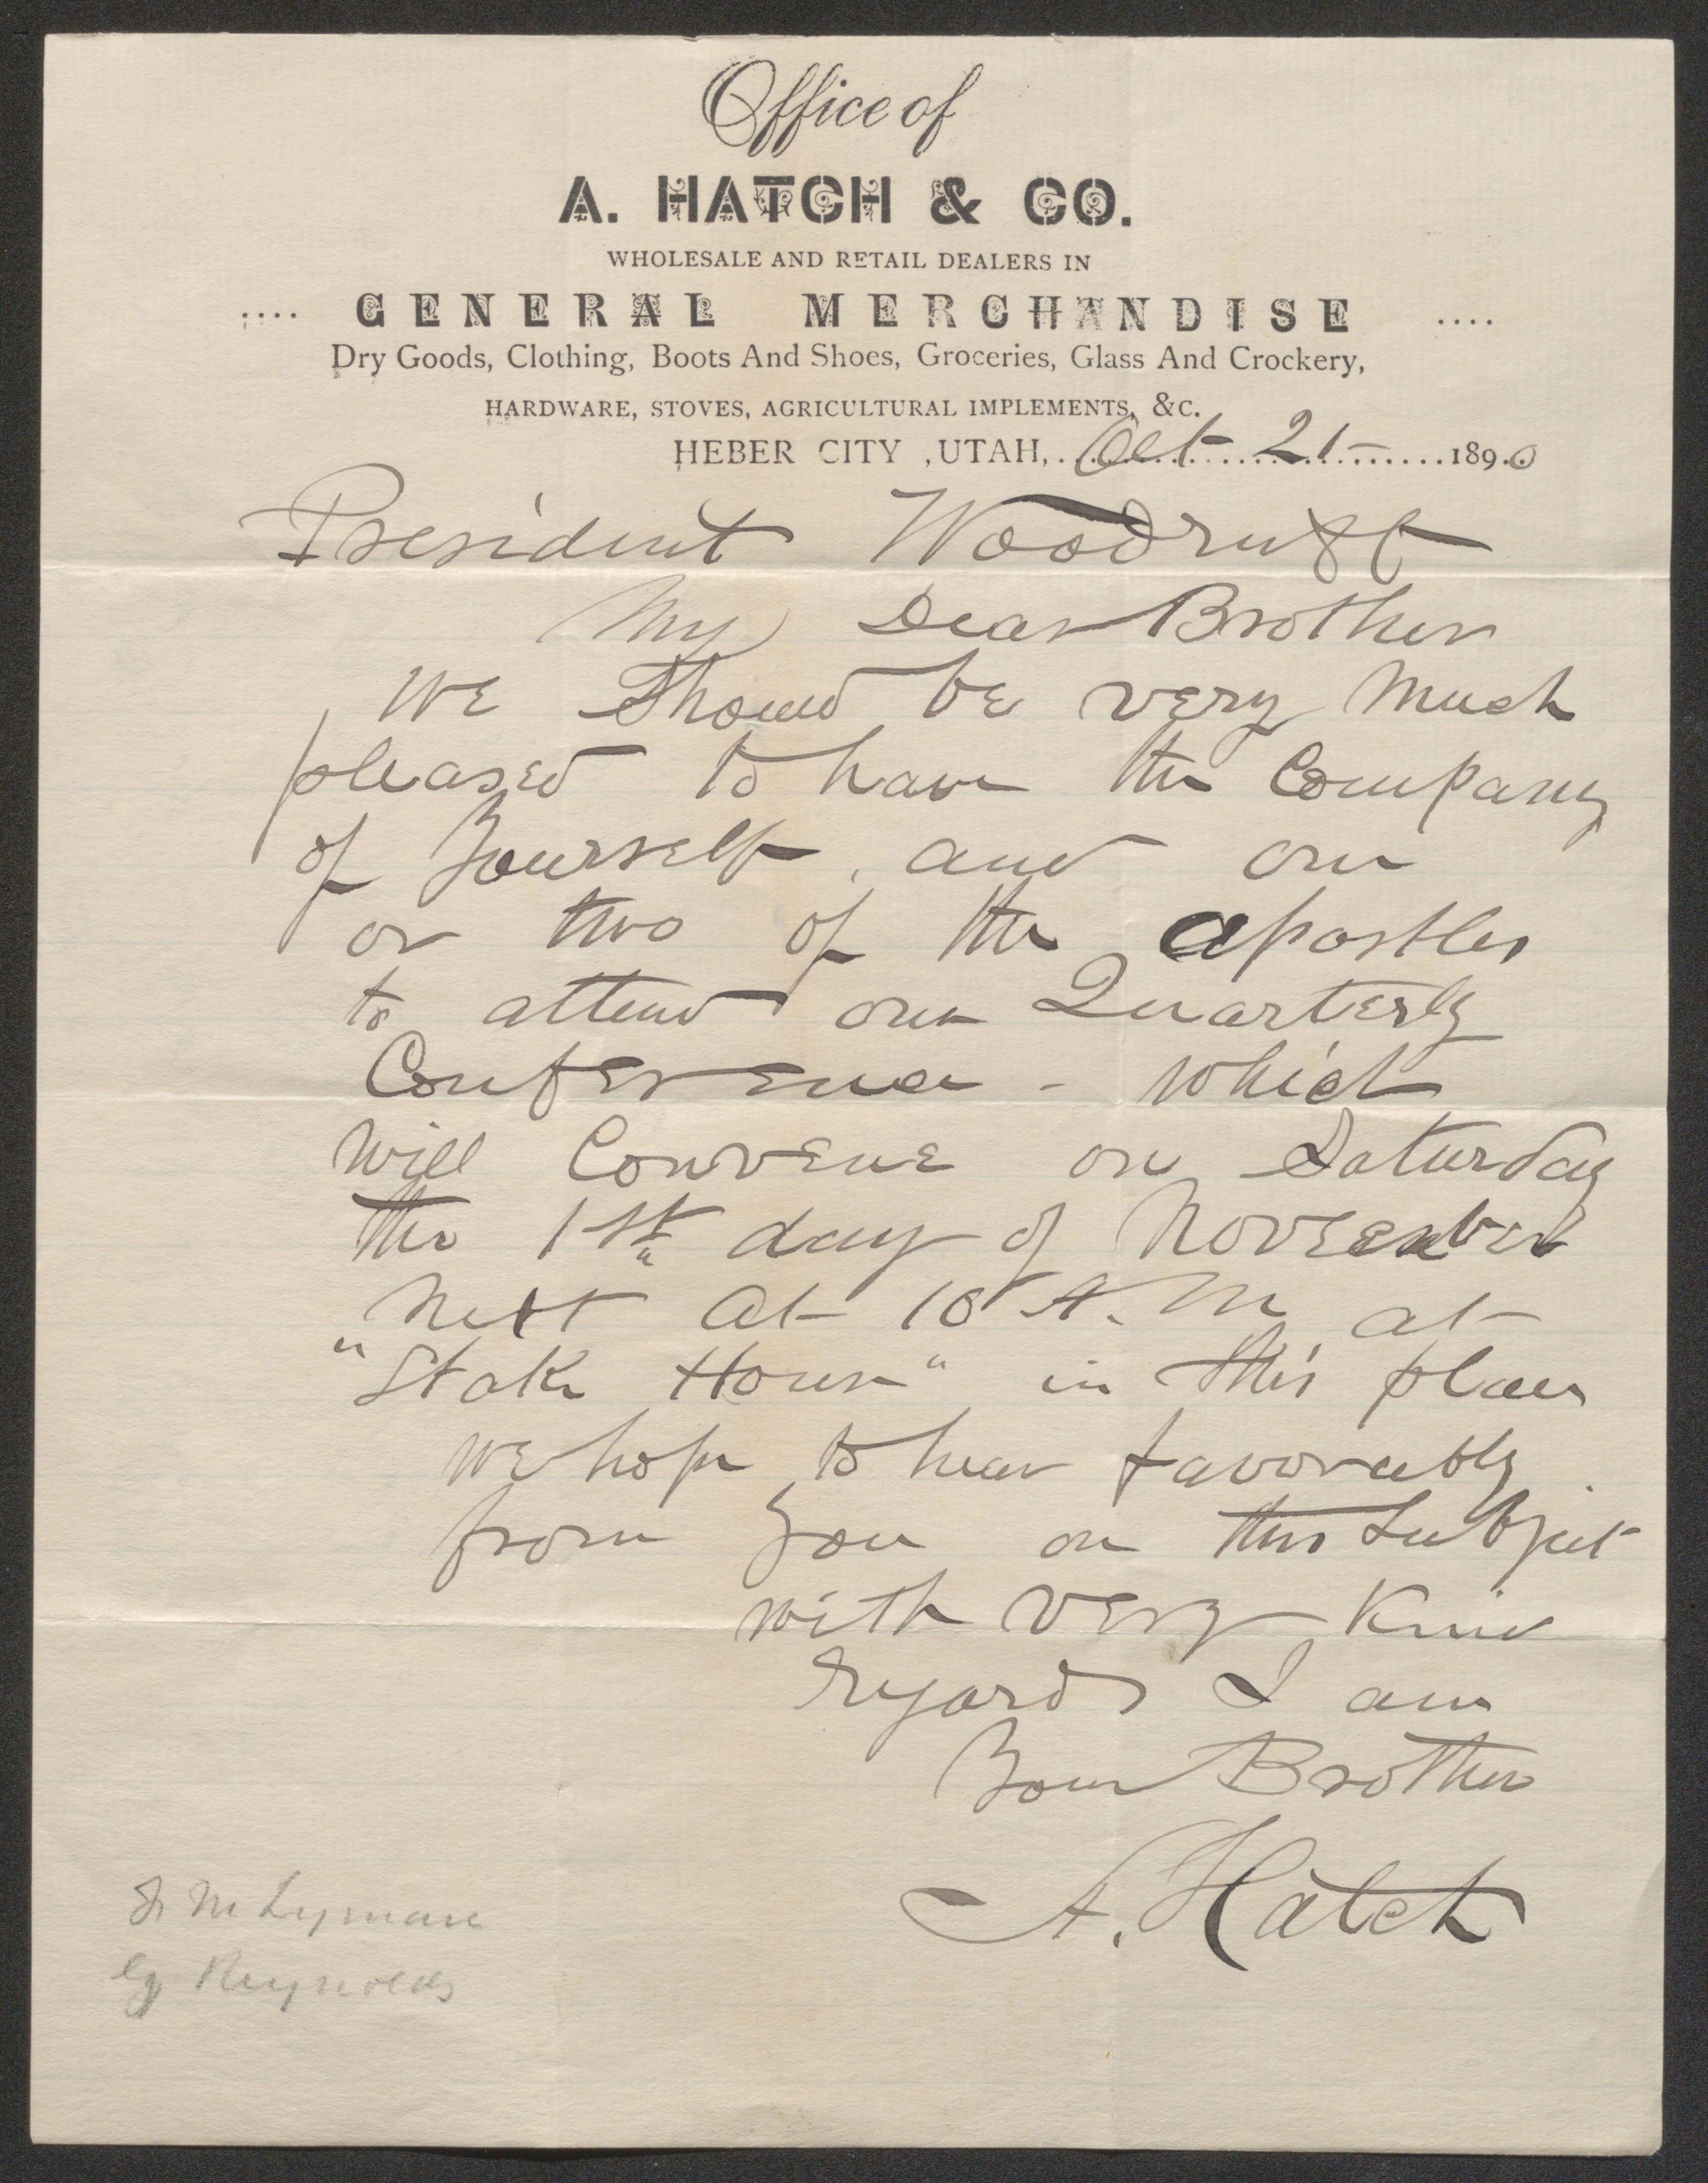 Office of
A. HATCH & CO.
WHOLESALE AND RETAIL DEALERS IN
.... GENERAL MERCHANDISE ....
Dry Goods, Clothing, Boots And Shoes, Groceries, Glass And Crockery,
HARDWARE, STOVES, AGRICULTURAL IMPLEMENTS, &C.
HEBER CITY ,UTAH, Oct 21 1890
President Woodruff
My Dear Brother
We Should be very Much
pleased to have the Company
of Yourself, and one
or two of the apostles
to attend our Quarterly
Conference - which
Will Convene on Saturday
the 1st day of November
Next At 10 A.M at
"Stake House" in this place
We hope to hear favorably
from you on this Subject
with very Kind
regards I am
Your Brother
A. Hatch
F M Lyman
G Reynolds